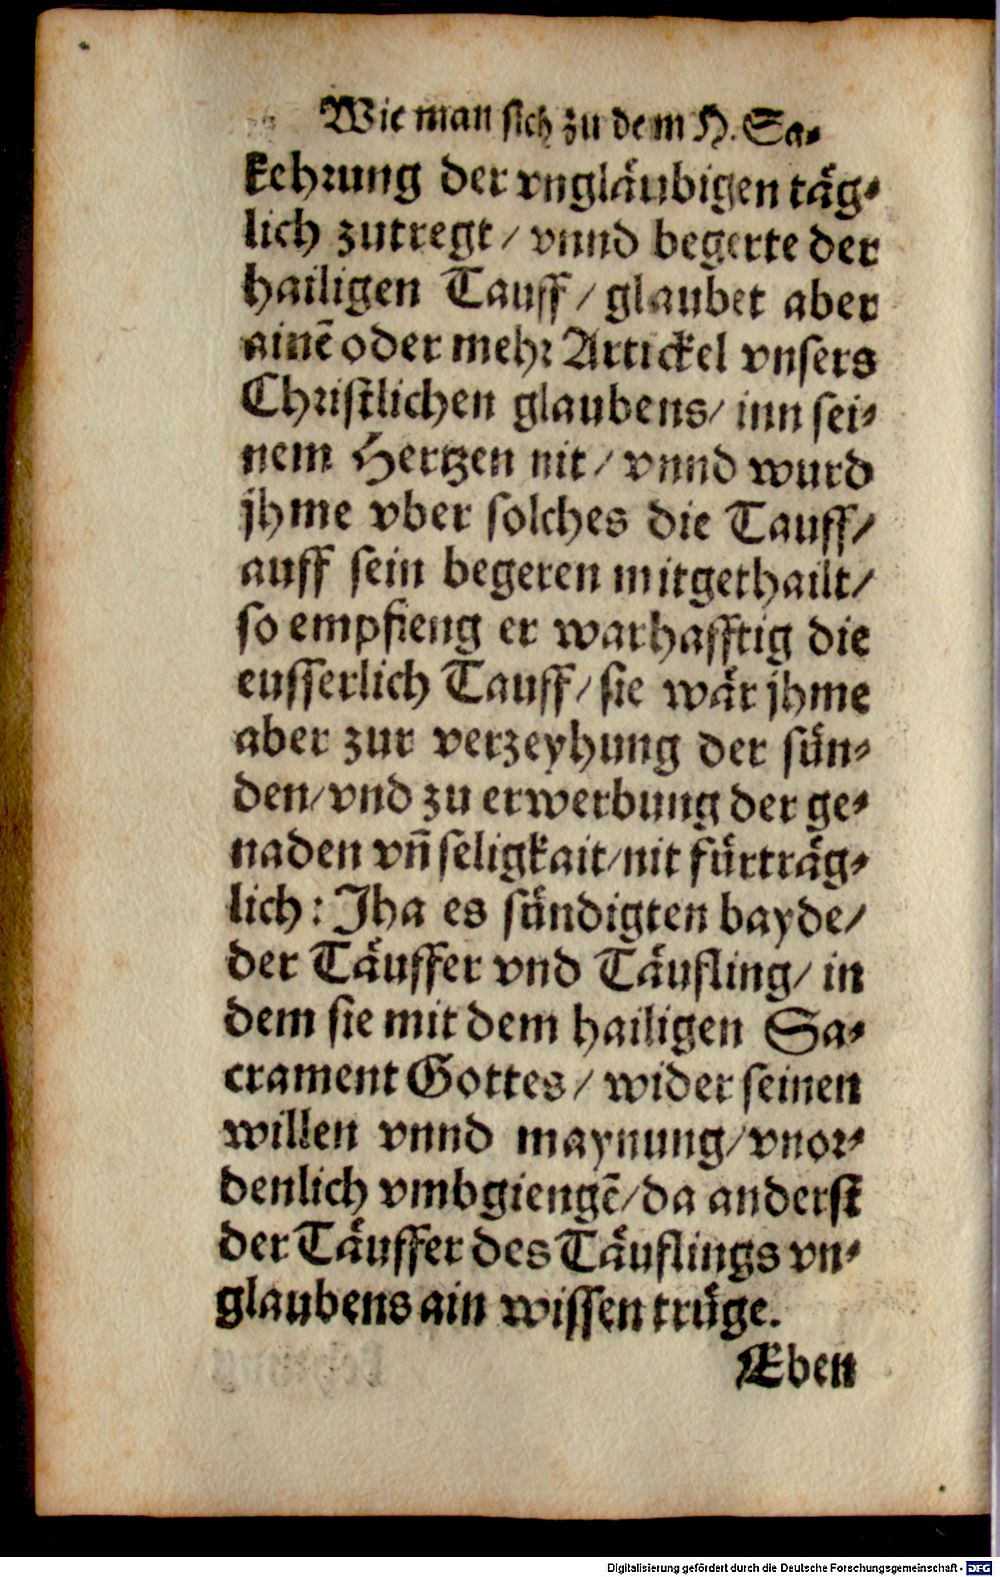 Wie man sich zu dem H. Sa⸗
kehrung der vngläubigen täg⸗
lich zutregt / vnnd begerte der
hailigen Tauff / glaubet aber
ainē oder mehr Artickel vnsers
Christlichen glaubens / inn sei⸗
nem Hertzen nit / vnnd wurd
jhme vber solches die Tauff /
auff sein begeren mitgethailt /
so empfieng er warhafftig die
eusserlich Tauff / sie wär jhme
aber zur verzeyhung der sün⸗
den / vnd zu erwerbung der ge⸗
naden vn̄ seligkait / nit fürträg⸗
lich: Jha es sündigten bayde /
der Täuffer vnd Täufling / in
dem sie mit dem hailigen Sa⸗
crament Gottes / wider seinen
willen vnnd maynung / vnor⸗
denlich vmbgiengē / da anderst
der Täuffer des Täuflings vn⸗
glaubens ain wissen trüge.
Eben
Digitalisierung gefördert durch die Deutsche Forschungsgemeinschaft - DFG